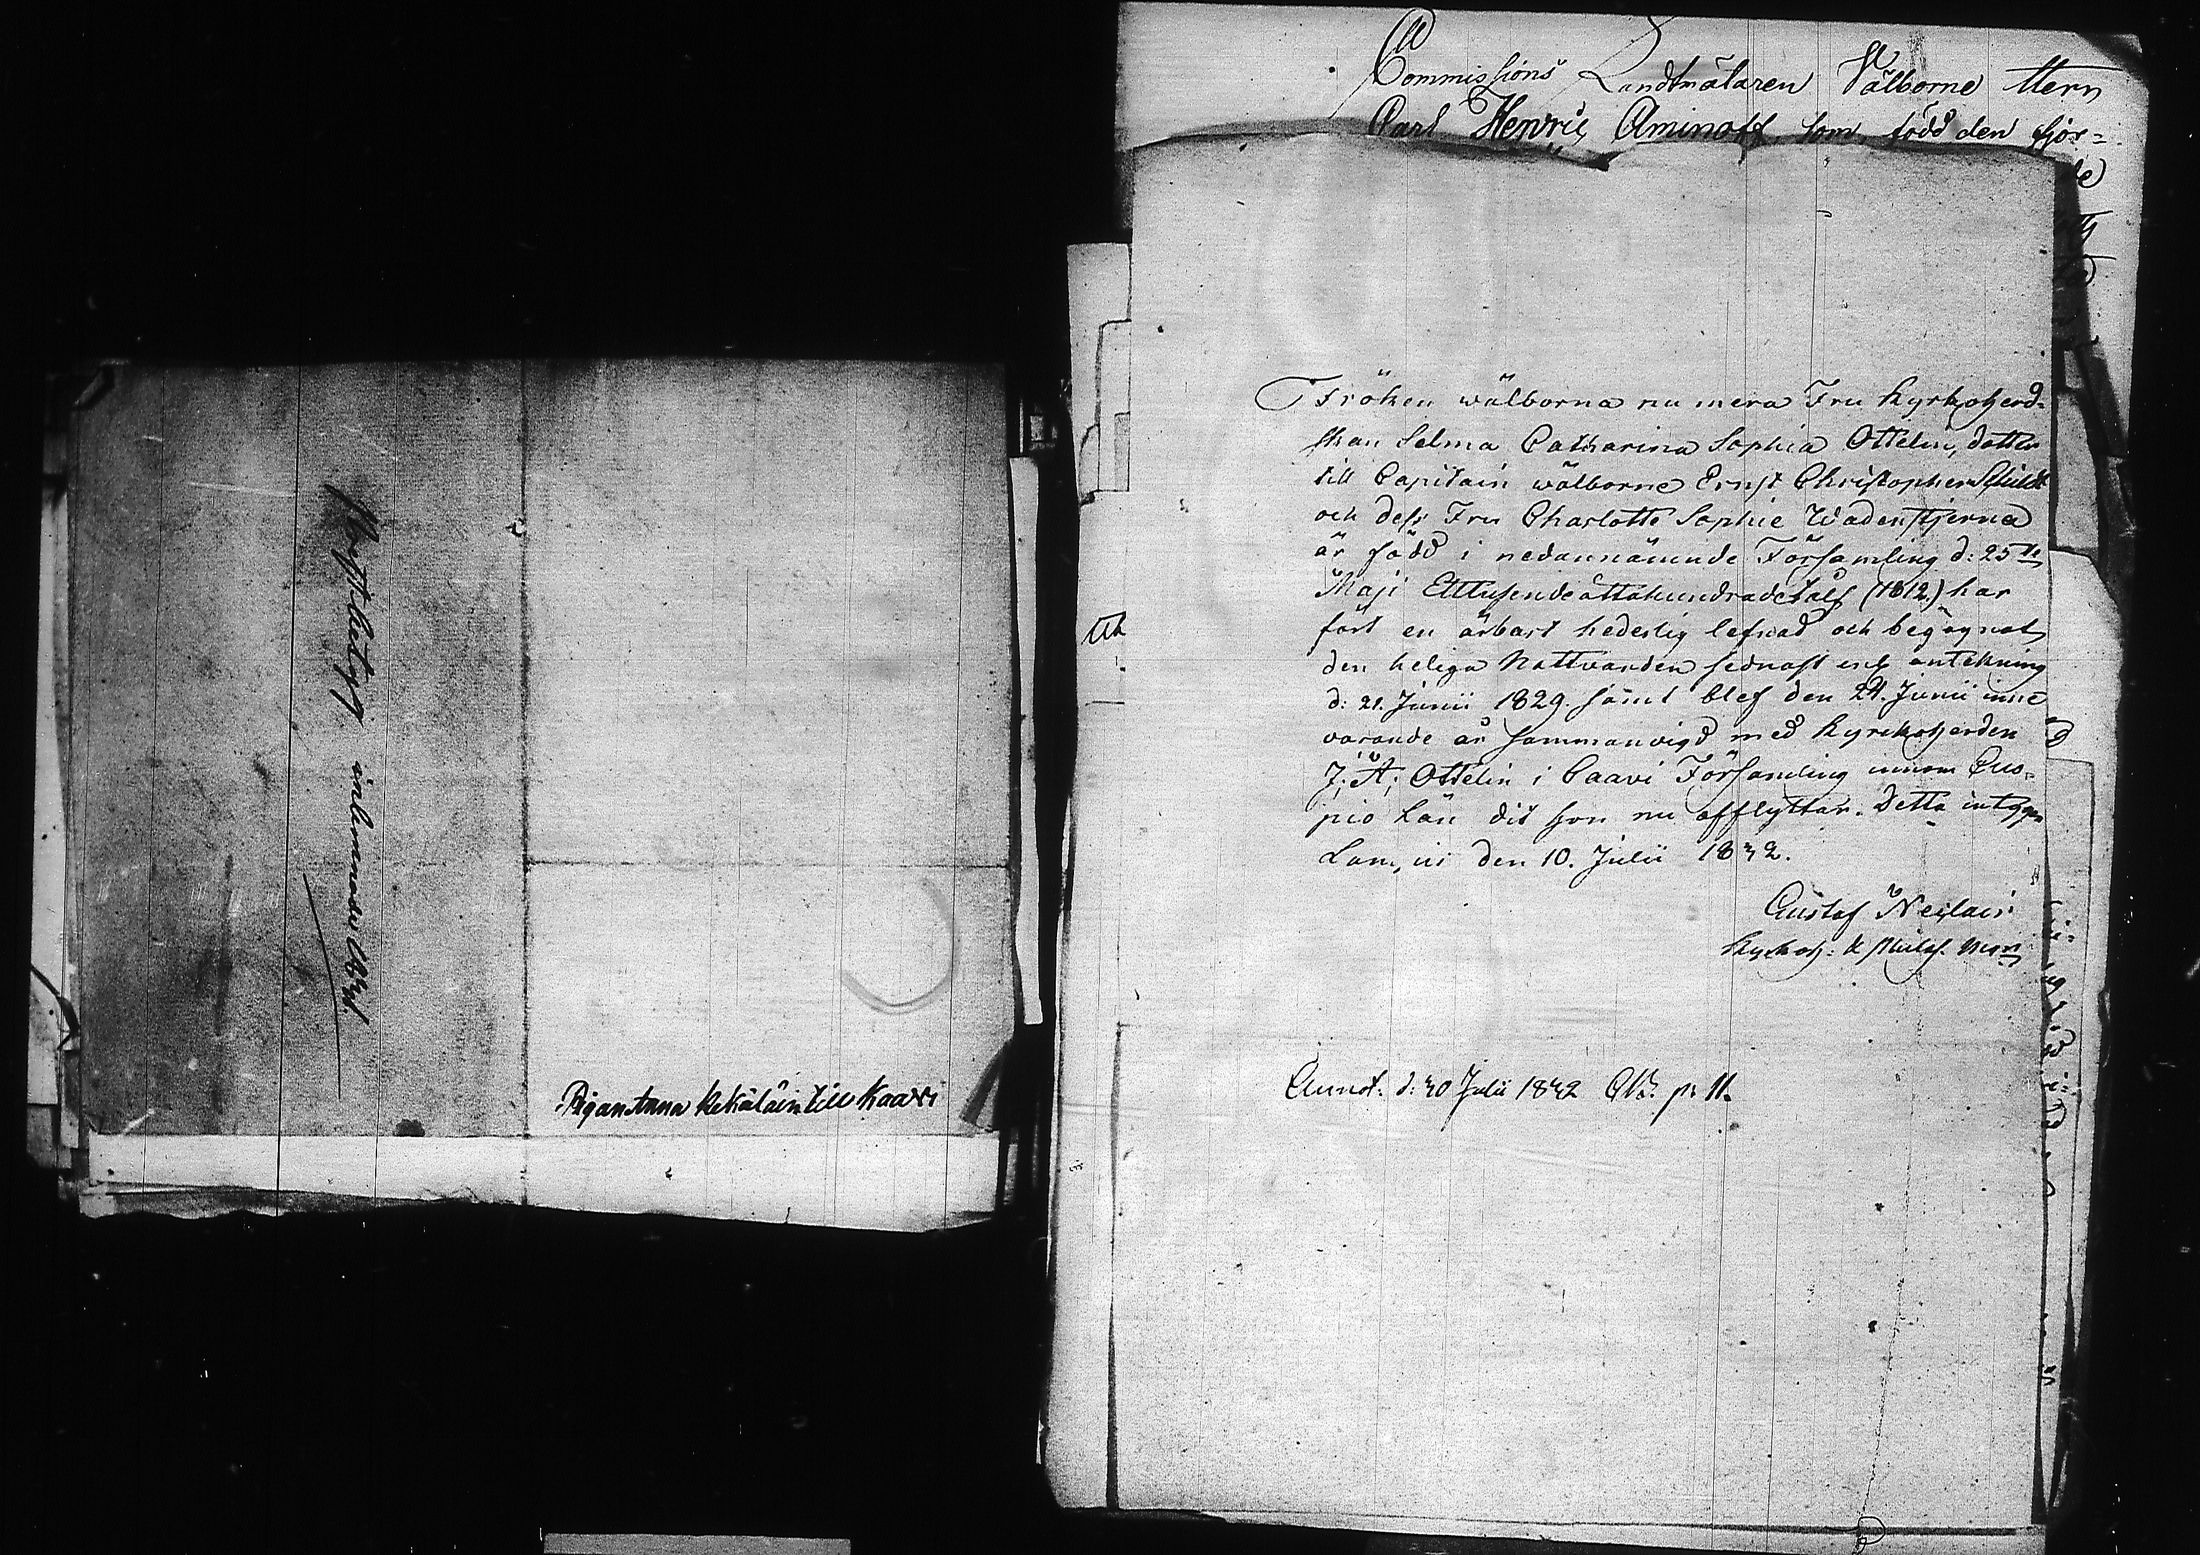 Prest betyg inlemnade 1832.
Pigan Anna Kekäläin till Kaavi
Commissions Landtmätaren Välborne Herr
Carl Henric Aminoff som född den fjor-
Fröken wälborna nu mera Fru Kyrkoherd-
skan Selma Catharina Sophia Ottelin, dotter
till Capitain wälborne Ernst Christopher Schildt
och dess Fru Charlotte Sophie Wadenstjerna
är född i nedannämnde Församling d: 25te
Maji Ettusendeåttahundradetolf (1812.) har
fört en ärbart hederlig lefnad och begagnat
den heliga Nattvarden sednast enl. antekning
d: 21. Junii 1829. samt blef den 24. Junii inne
varande år sammanvigd med Kyrkoherden
J: A: Ottelin i Caavi Församling innom Cuo-
pio Län dit hon nu afflyttar. Detta intygar
den 10. Julii 1832.
Gustaf
Kyrkoh:
Annot. d: 30 Julii 1832 CB. p: 11.